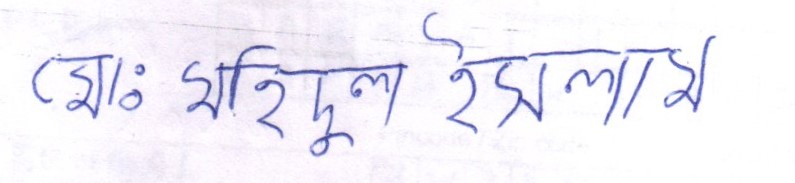 মোঃ মহিদুল ইসলাম